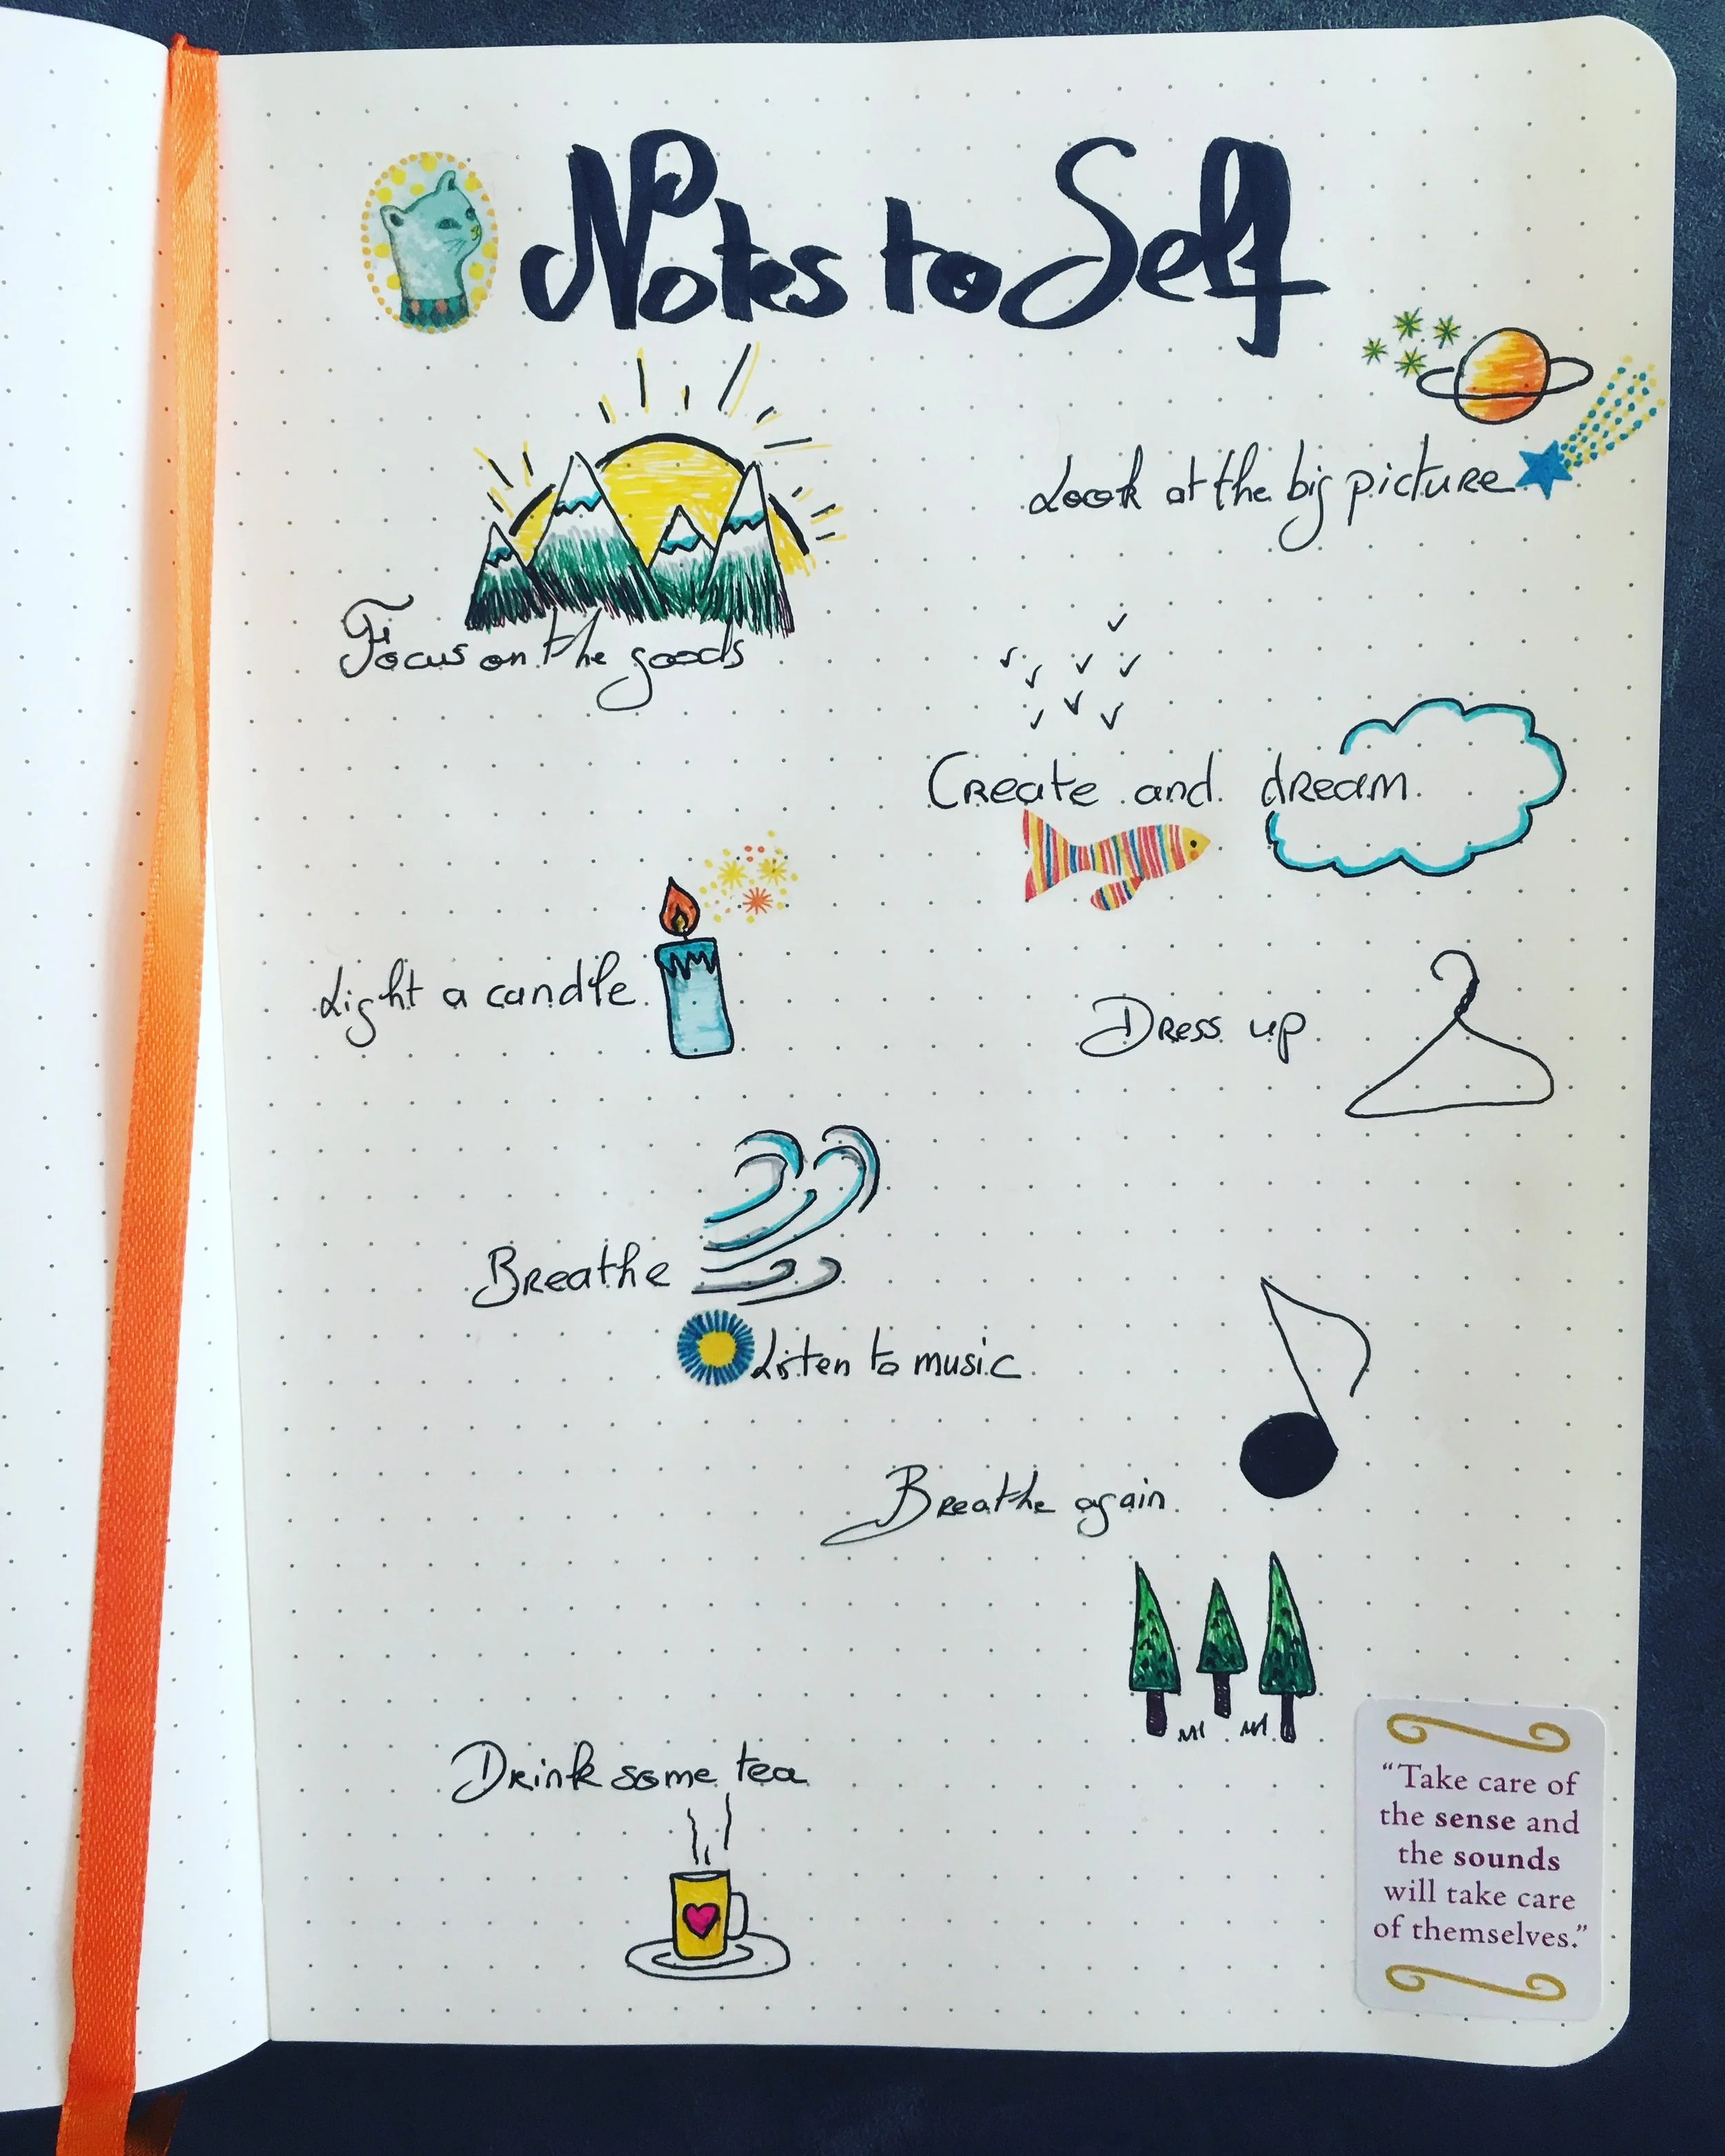 Notes to Self
Look at the big picture
Focus on the goods
Create and dream
Light a candle
Dress up
Breathe
Listen to music
Breathe again
Drink some tea
“Take care of
the sense and
the sounds
will take care
of themselves.”